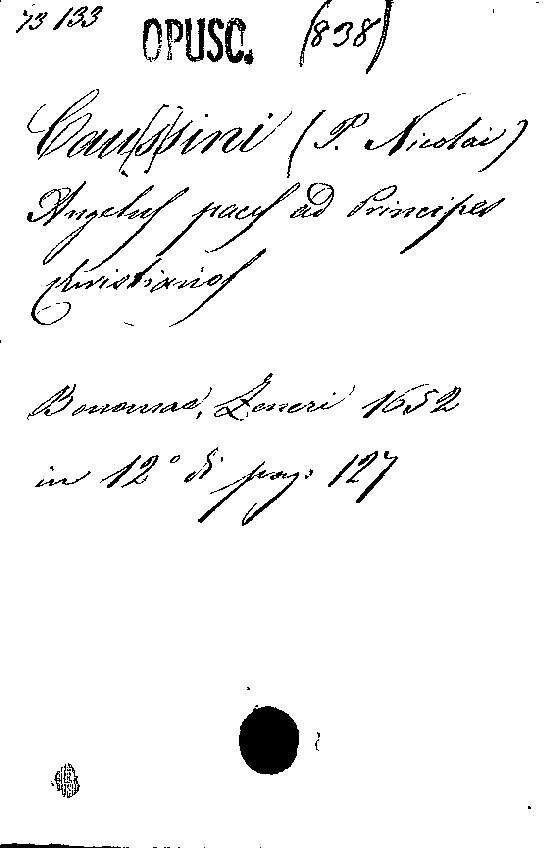 73 133 OPUSC. (838)
Cau[s]sini (P. Nicolai)
Angelus pacis ad Principes
Christianos
Bononiae, Zeneri 1652
in 12° di pag: 127